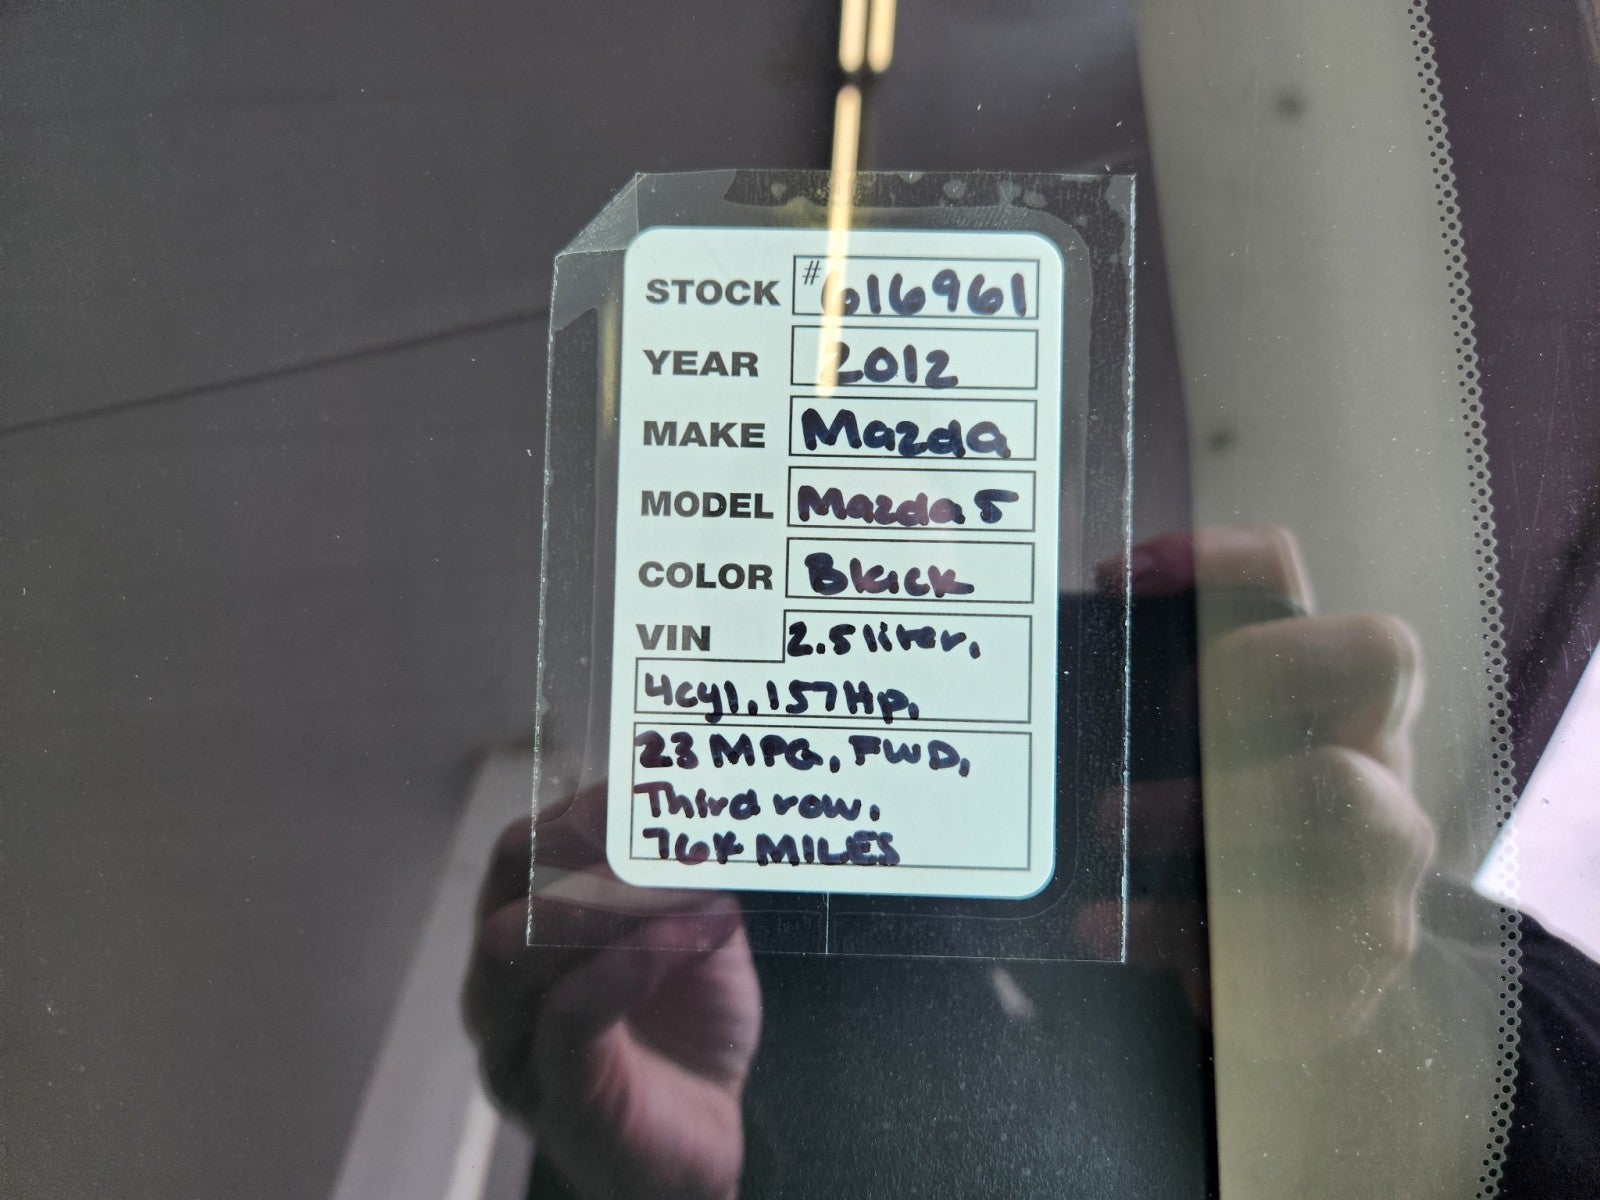 STOCK #616961
YEAR 2012
MAKE Mazda
MODEL Mazda 5
COLOR Black
VIN 2.5 liter.
4cyl. 157 Hp.
23 MPG. FWD.
Third row.
76K MILES